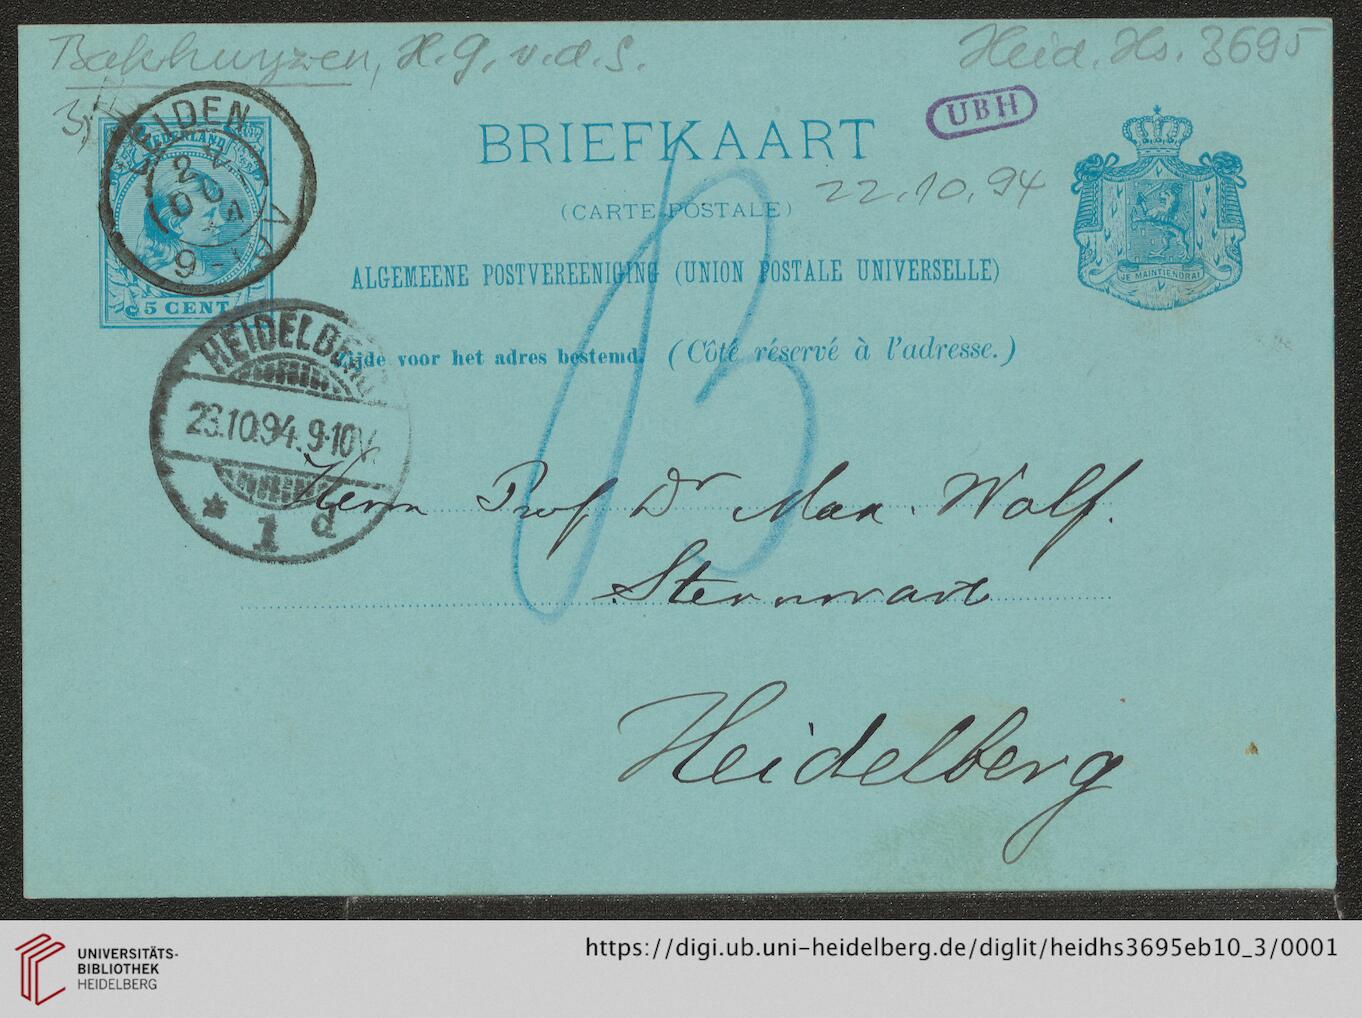 Bakhuyzen, H. G. v. d. S.
Heid. Hs. 3695
3)
UBH
LEIDEN
NEDERLAND
5 CENT
BRIEFKAART
(CARTE POSTALE)
22.10.94
ALGEMEENE POSTVEREENIGING (UNION POSTALE UNIVERSELLE)
JE MAINTIENDRAI
Zijde voor het adres bestemd. (Côté réservé à l'adresse.)
HEIDELBERG
23.10.94. 9-10 V.
* 1 d
Herrn Prof Dr Max Wolf.
Sternwart
Heidelberg
UNIVERSITÄTS-
BIBLIOTHEK
HEIDELBERG
https://digi.ub.uni-heidelberg.de/diglit/heidhs3695eb10_3/0001